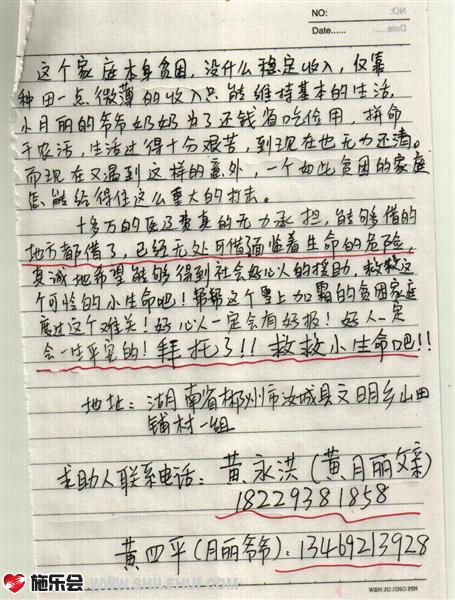 NO:
Date......
这个家庭本身贫困，没什么稳定收入，仅靠
种田一点微薄的收入只能维持基本的生活，
小月丽的爷爷奶奶为了还钱省吃俭用，拼命
干农活，生活过得十分艰苦，到现在也无力还清。
而现在又遇到这样的意外，一个如此贫困的家庭
怎能经得住这么重大的打击。
十多万的医药费真的无力承担，能够借的
地方都借了，已经无处可借面临着生命的危险，
真诚地希望能够得到社会好心人的援助，救救这
个可怜的小生命吧！帮帮这个雪上加霜的贫困家庭
度过这个难关！好心人一定会有好报！好人一定
会一生平安的！拜托了!!救救小生命吧!!
地址：湖南省郴州市汝城县文明乡山田
铺村一组
求助人联系电话：黄永洪（黄月丽父亲）
18229381858
黄四平（月丽爷爷）：13469213928
施乐会
WWW.SHILEHUI.COM
WEN JU JING PIN